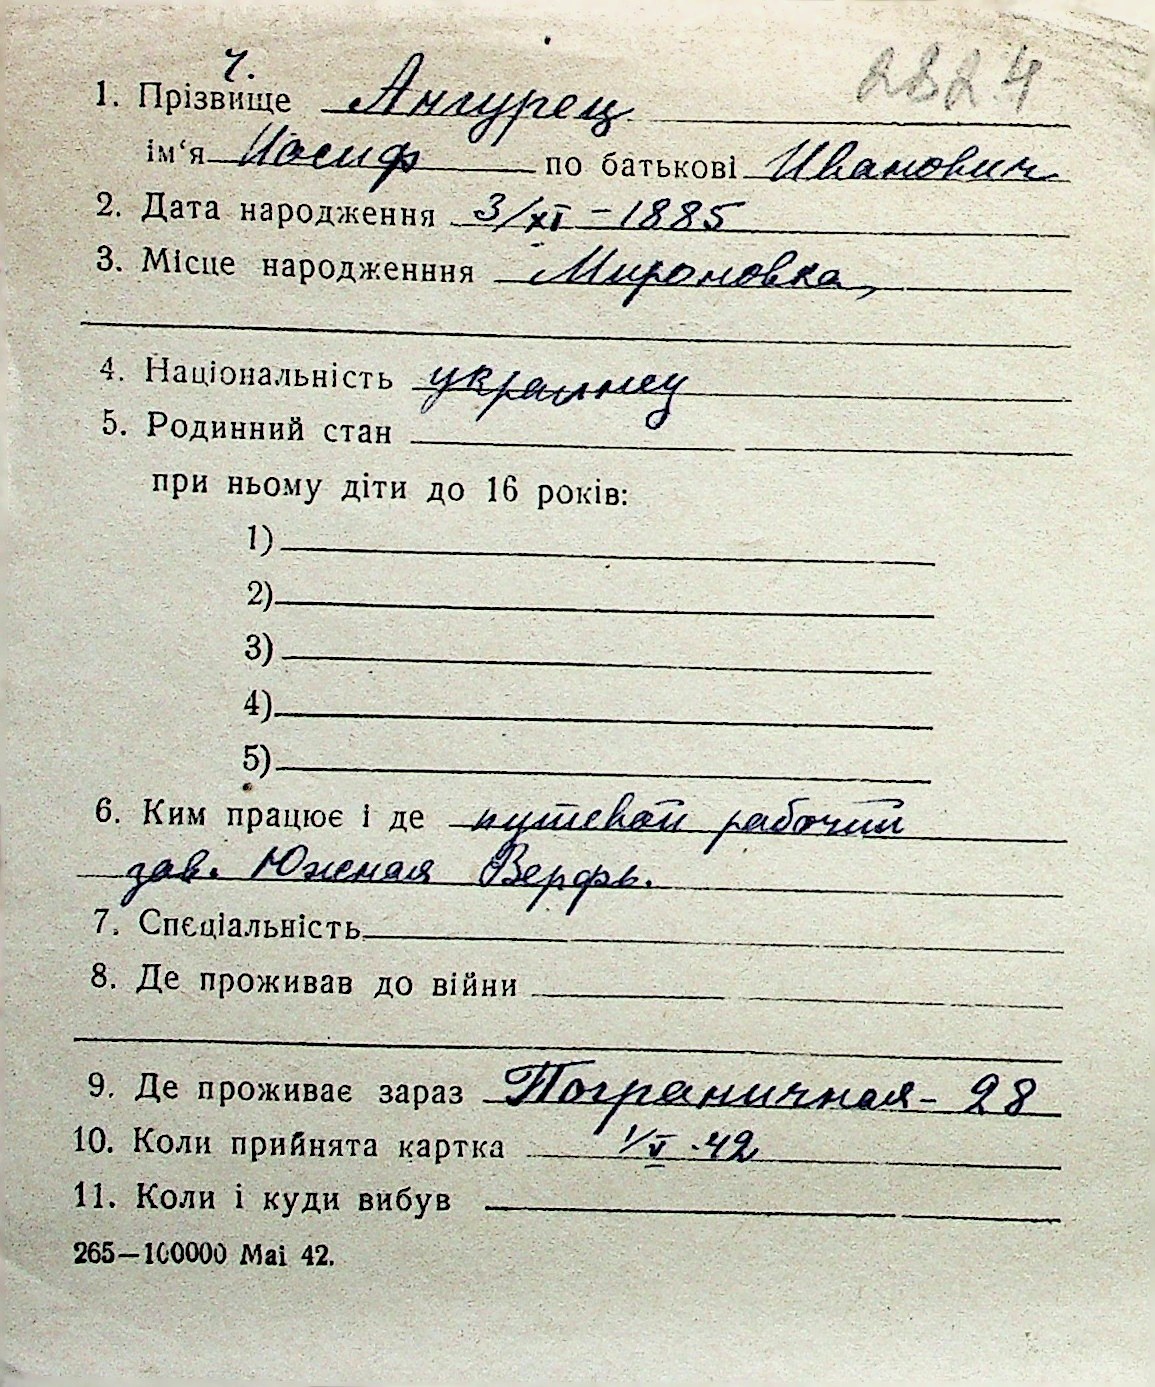 ч.
2824
1. Прізвище Ангурец
ім‘я Иосиф по батькові Иванович
2. Дата народження 3/XI – 1885
3. Місце народженння Мироновка,
4. Національність украинец
5. Родинний стан
при ньому діти до 16 років:
1)
2)
3)
4)
5)
6. Ким працює і де путевой рабочий
зав. Южная Верфь.
7. Спєціальність
8. Де проживав до війни
9. Де проживає зараз Пограничная – 28
10. Коли прийнята картка 1/V - 42
11. Коли і куди вибув
265—100000 Mai 42.